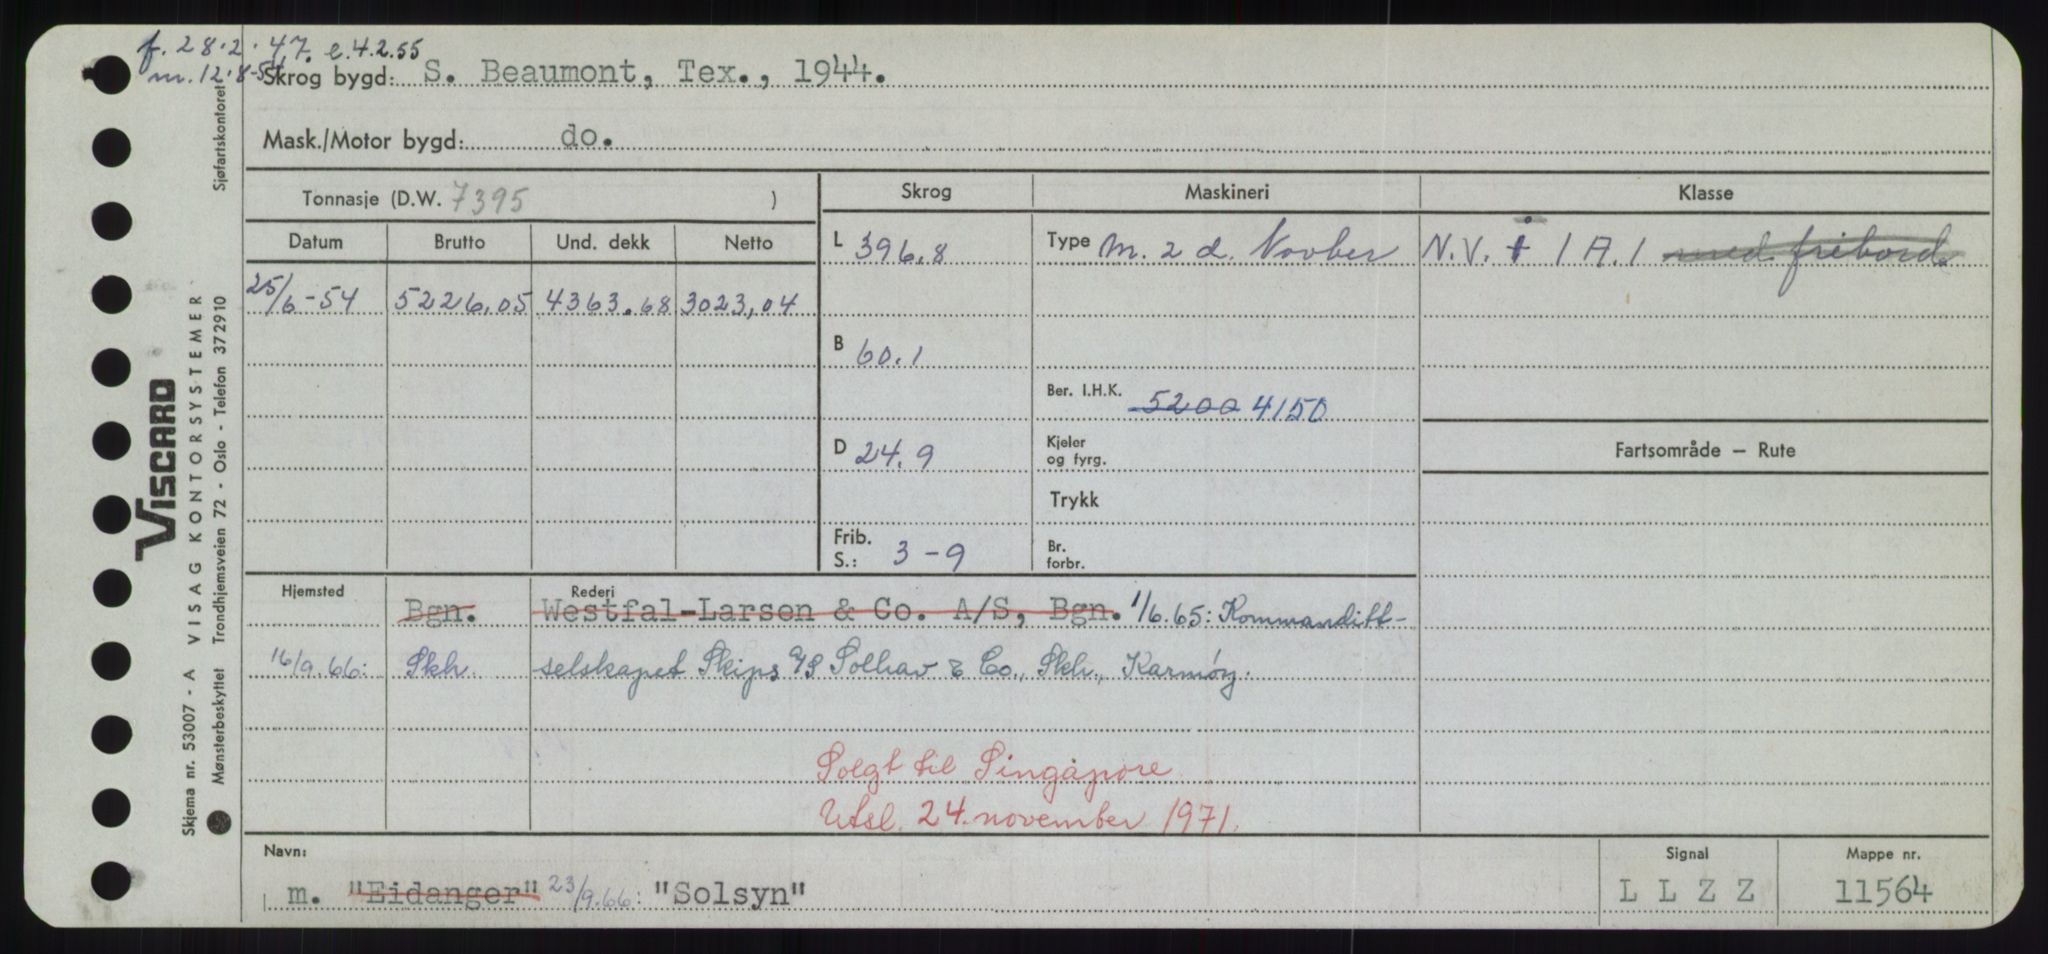 f. 28.2.47. e.4.2.55
m. 12.8-54
Skrog bygd: S. Beaumont, Tex., 1944.
Mask./Motor bygd: do.
Tonnasje (D.W. 7395 )
Skrog Maskineri Klasse
Datum Brutto Und. dekk Netto
L 396.8 Type M. 2 d. N. V. 1 A. 1 med fribord
25/6-54 5226,05 4363.68 3023,04
B 60.1
Ber. I.H.K. 5200 4150
D 24.9 Kjeler og fyrg.
Fartsområde – Rute
Trykk
Frib. S.: 3-9 Br. forbr.
Hjemsted Rederi
Bgn. Westfal-Larsen & Co. A/S, Bgn. 1/6.65: Kommanditt-
16/9.66: Skh. selskapet Skips A/S Solhav & Co., Skh., Karmøy.
Solgt til Singapore
Utsl. 24. november 1971.
Navn: Signal Mappe nr.
m. "Eidanger" 23/9.66: "Solsyn" L L Z Z 11564
Sjøfartskontoret
VISCARD
VISAG KONTORSYSTEMER
Skjema nr. 53007 - A
Mønsterbeskyttet Trondhjemsveien 72 - Oslo - Telefon 372910